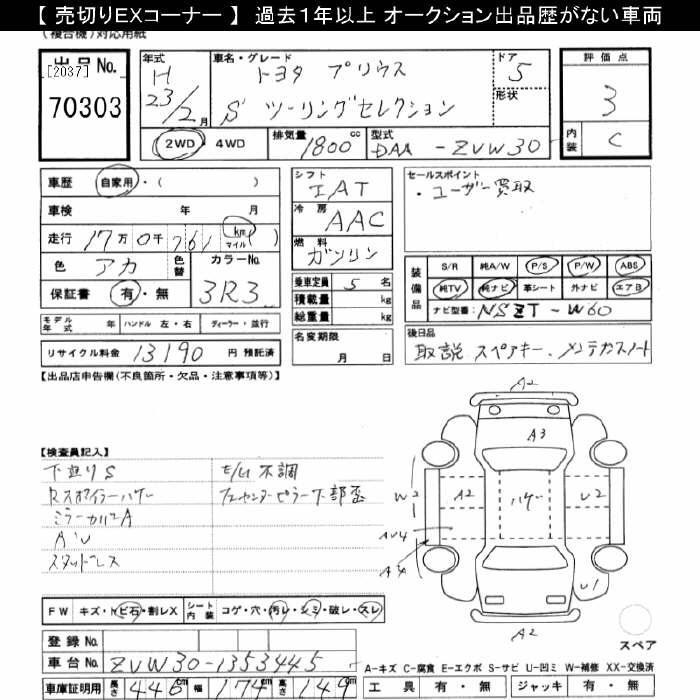 【 売切りEXコーナー 】 過去１年以上 オークション出品歴がない車両
(複合機)対応用紙
出品 No.
[2037]
70303
年式
H
23/2月
車名・グレード
トヨタ プリウス
S ツーリングセレクション
ドア
5
形状
評価点
3
内装
C
2WD・4WD
排気量 1800 cc
型式 DAA - ZVW30
車歴 自家用・( )
車検 年 月
走行 17万 0千 761 km マイル ( )
色 アカ 色替
カラーNo. 3R3
保証書 有・無
シフト
IAT
冷房
AAC
燃料
ガソリン
乗車定員 5 名
積載量 kg
総重量 kg
名変期限
月 日
セールスポイント
・ユーザー買取
装備品
S/R 純A/W P/S P/W ABS
純TV 純ナビ 革シート 外ナビ エアB
ナビ型番: NSZT - W60
後日品
取説 スペアキー、メンテナンスノート
モデル年式 年 ハンドル 左・右 ディーラー・並行
リサイクル料金 13190 円 預託済
【出品店申告欄(不良箇所・欠品・注意事項等)】
【検査員記入】
下廻りS
Rスポイラーハゲ
ミラーカバーA
A'U
スタッドレス
E/M不調
フェンダーピラー下部歪
A2
A3
W2
A2
ハゲ
U2
U1
A2
FW キズ・トビ石・割レX
シート内装 コゲ・穴・汚レ・シミ・破レ・スレ
登録 No.
車台 No. ZVW30-1353445
車庫証明用 長さ 446 cm 幅 174 cm 高さ 149 cm
スペア
A-キズ C-腐食 E-エクボ S-サビ U-凹ミ W-補修 XX-交換済
工具 有・無 ジャッキ 有・無